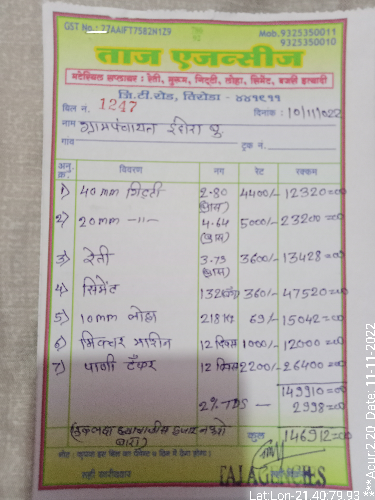 GST No.: 27AAIFT7582N1Z9
Mob. 9325350011
9325350010
ताज एजन्सीज
मटेरियल सप्लायर : रेती, मुरूम, गिट्टी, लोहा, सिमेंट, बजरी इत्यादी
जि.टी.रोड, तिरोडा - ४४१९११
बिल न. 1247 दिनांक : 10/11/022
नाम ग्रामपंचायत इंदोरा बु
गाव ट्रक नं.
अनु. क्र. विवरण नग रेट रक्कम
1) 40 mm गिट्टी 2.80 (ब्रास) 4400/- 12320=00
2) 20mm -"- 4.64 (ब्रास) 5000/- 23200=00
3) रेती 3.73 (ब्रास) 3600/- 13428=00
4) सिमेंट 132 बॅग 360/- 47520=00
5) 10mm लोहा 218 Kg 69/- 15042=00
6) मिक्चर मशिन 12 दिवस 1000/- 12000=00
7) पाणी टँकर 12 दिवस 2200/- 26400=00
149910=00
2% TDS — 2998=00
कुल 146912=00
TAJ AGENCIES
Lat.Lon-21.40:79.93
***Acur:2.20 Date: 11-11-2022